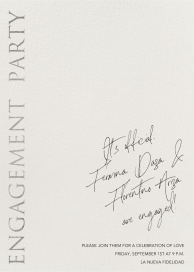 ENGAGEMENT PARTY
It's official!
Fermina Daza &
Florentino Ariza
are engaged!
PLEASE JOIN THEM FOR A CELEBRATION OF LOVE
FRIDAY, SEPTEMBER 1ST AT 9 P.M.
LA NUEVA FIDELIDAD